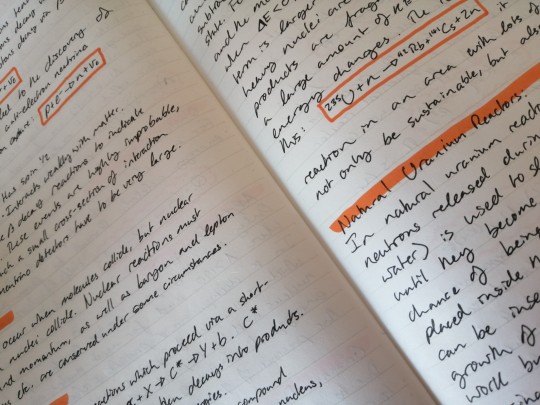 decaying via
led to the discovery of
anti-electron neutrino
capture: p+e⁻→n+νe
Has spin ½
Interacts weakly with matter.
β decay reactions to indicate
These events are highly improbable,
such a small cross-section of interaction
neutrino detectors have to be very large.
occur when molecules collide, but nuclear
nuclei collide. Nuclear reactions must
and momentum, as well as baryon and lepton
etc. are conserved under some circumstances.
reactions which proceed via a short-
+ X → C* → Y + b. C*
then decays into products.
compound
state. Fo
and the m
when ΔE<
term is larger
heavy nuclei are
products are fragm
a large amount of KE
energy changes. The
²³⁵U + n →
Rb + ¹⁴¹Cs + 2n
this:
reaction in an area with lots of
not only be sustainable, but also
Natural Uranium Reactors.
In natural uranium react
neutrons released durin
water) is used to sl
until they become
chance of being
placed inside
can be inse
growth of
work bu